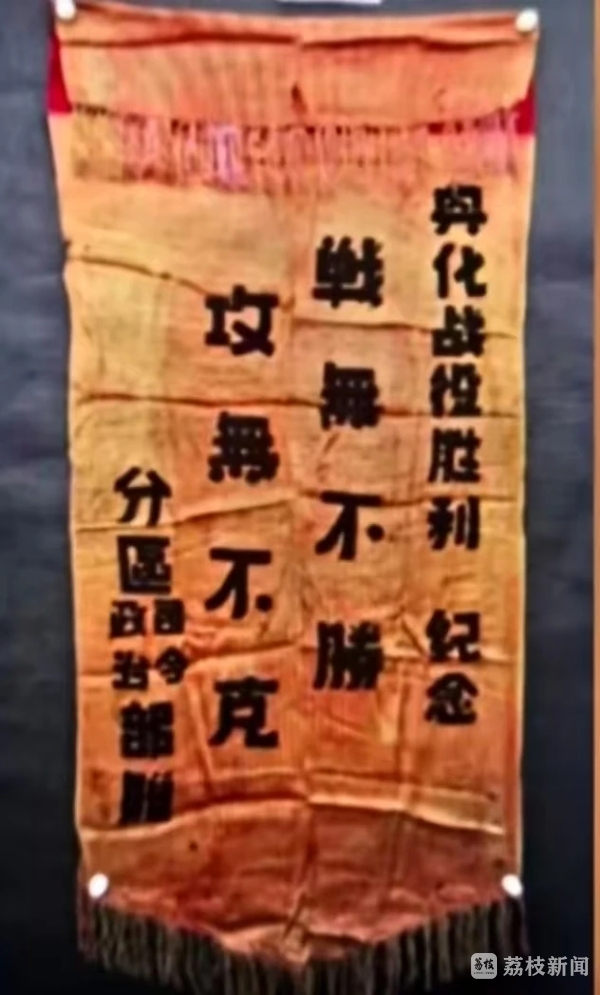 兴化战役胜利 纪念
戰無不勝
攻無不克
分區司令政治部贈
荔枝新闻